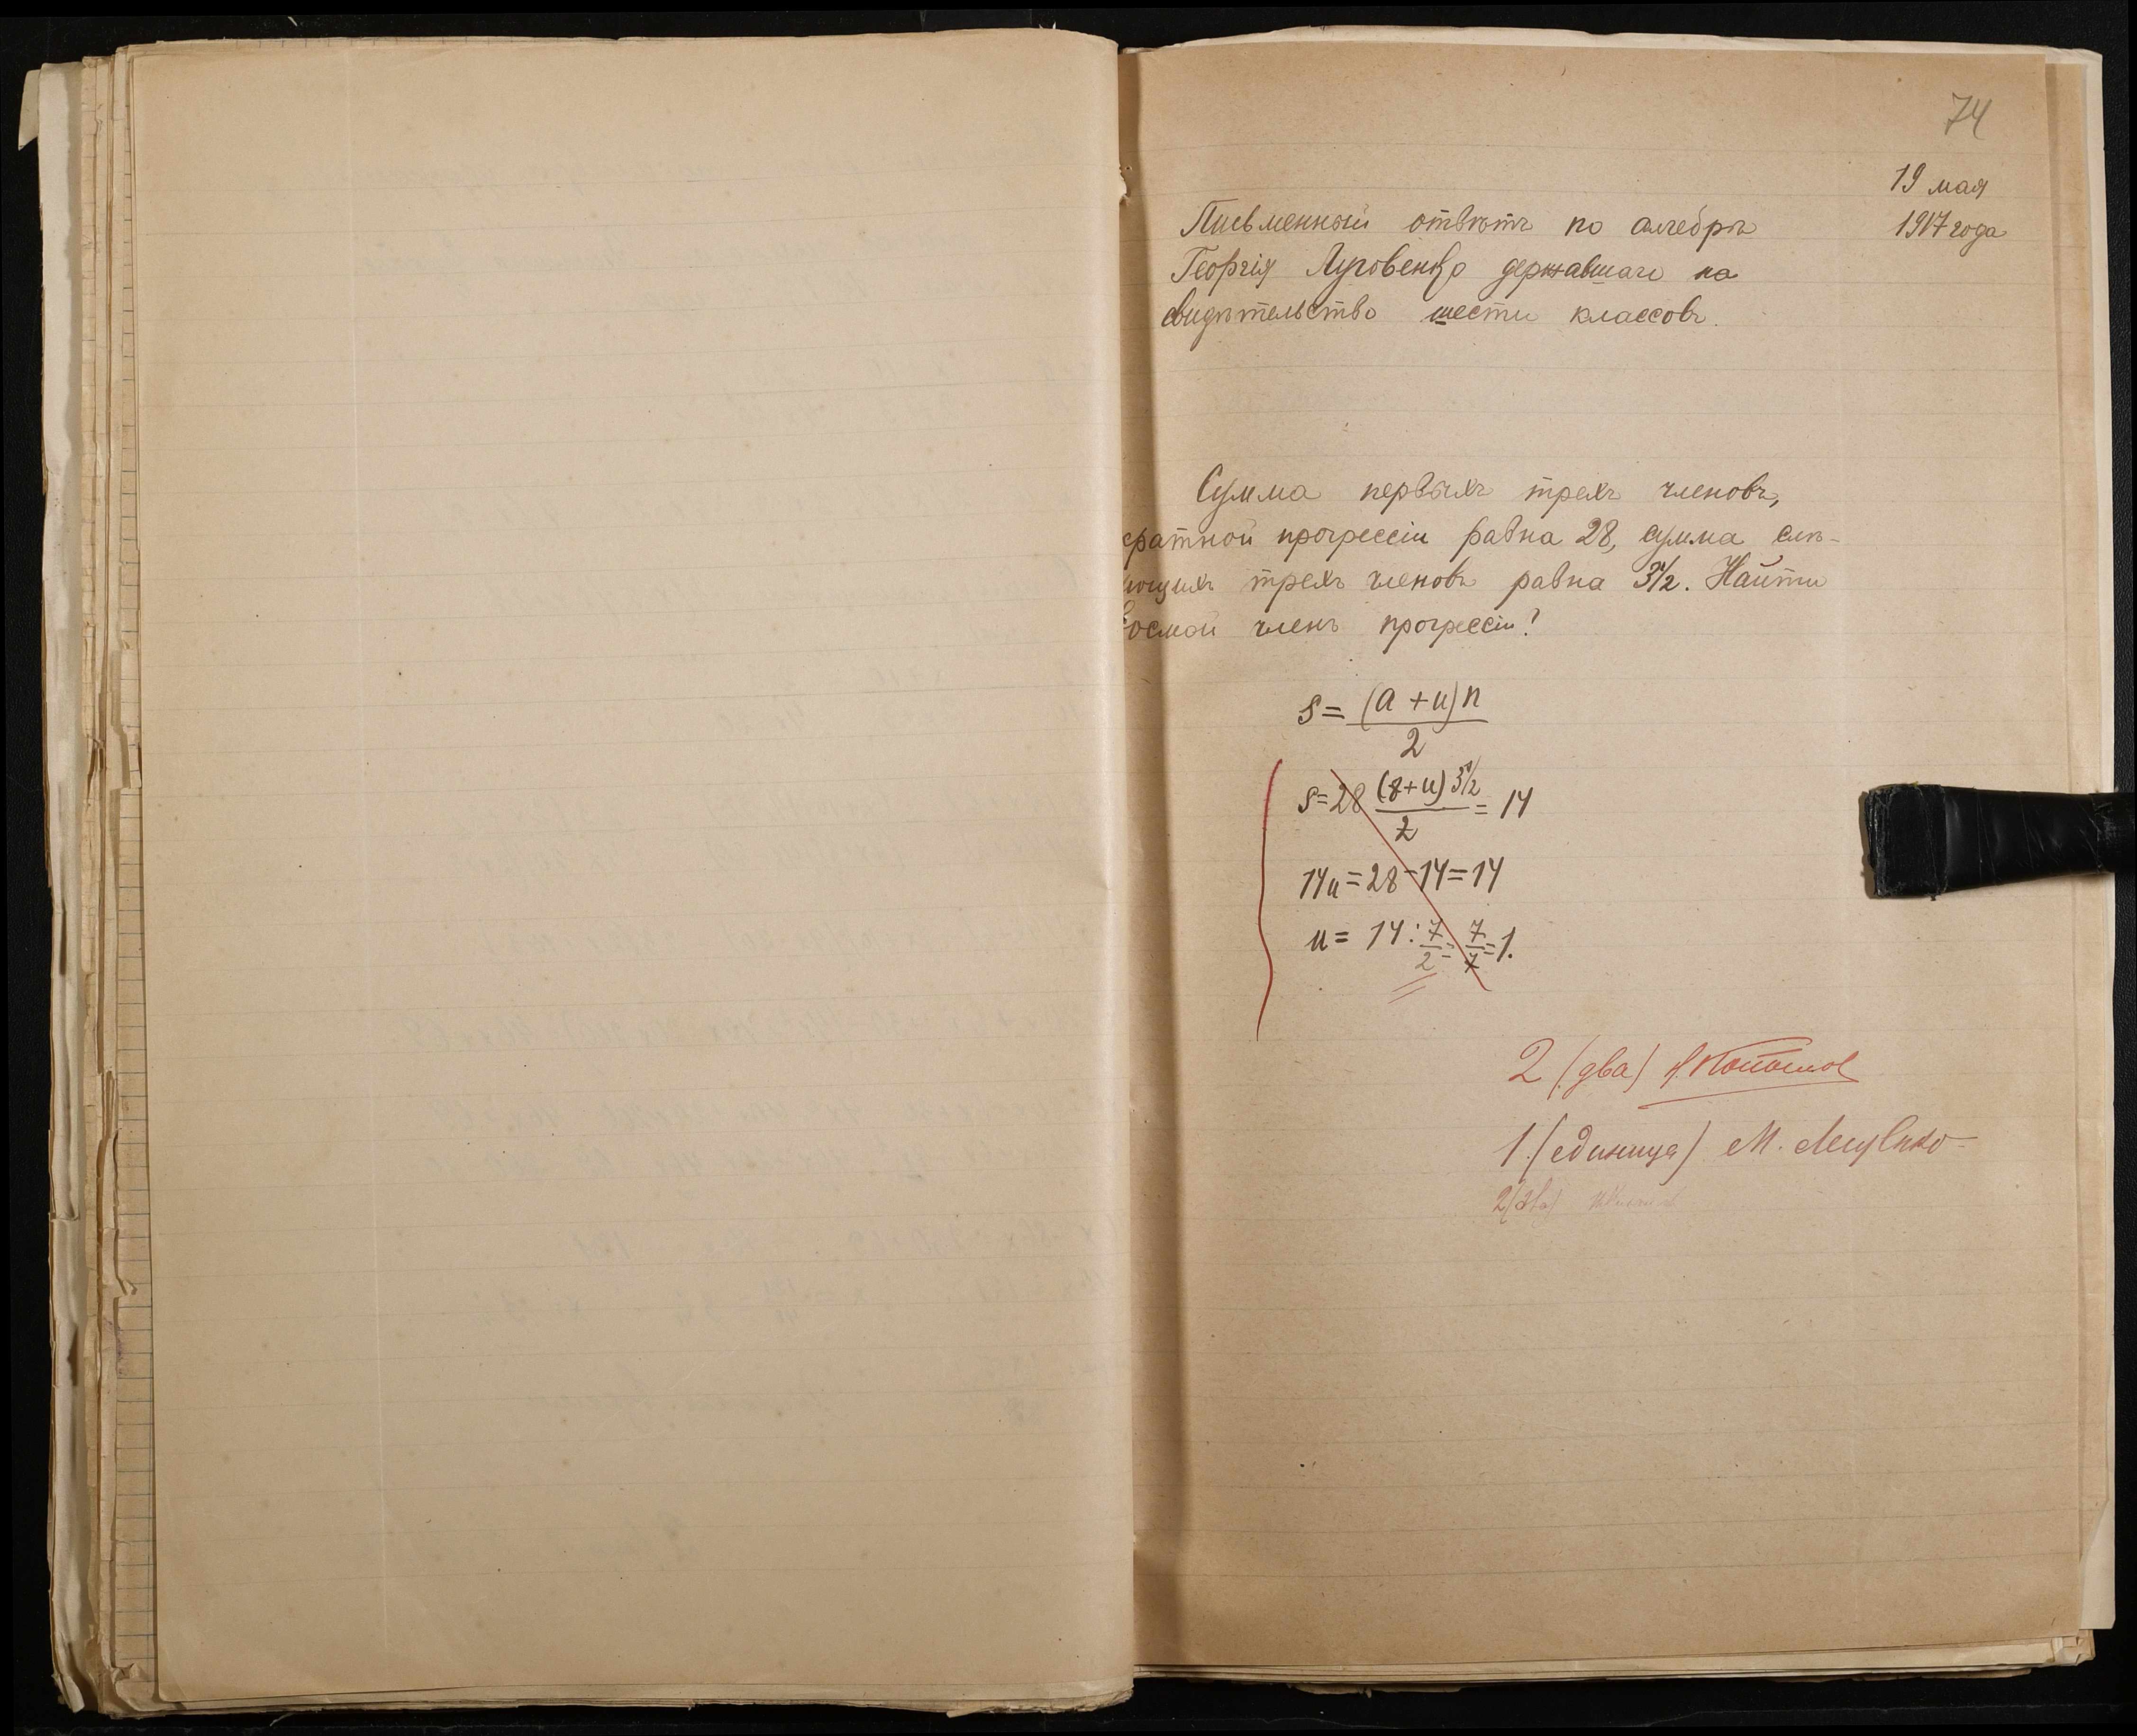 74
19 мая
1917 года
Письменный отвѣтъ по алгебрѣ
Георгія Луговенко державшаго на
свидѣтельство шести классовъ.
Сумма первыхъ трехъ членовъ,
кратной прогрессіи равна 28, сумма слѣ-
ющихъ трехъ членовъ равна 3 1/2. Найти
восмой членъ прогрессіи?
S = (a + u) n / 2
S = 28 (8+u) 3 1/2 / 2 = 14
14u = 28 - 14 = 14
u = 14 : 7/2 = 7/7 = 1.
2 (два)
1 (единица) М.
2 (два)